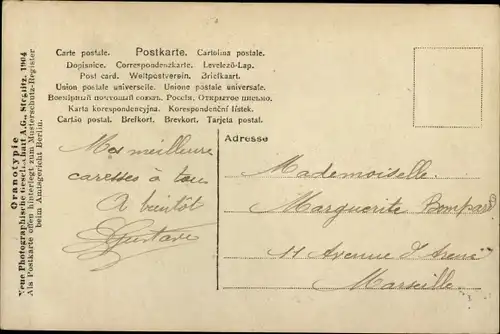 Carte postale. Postkarte. Cartolina postale.
Dopisnice. Correspondenzkarte. Levelező-Lap.
Post card. Weltpostverein. Briefkaart.
Union postale universelle. Unione postale universale.
Всемірный почтовый союзъ. Россія. Открытое письмо.
Karta korespondencyjna. Korespondenční lístek.
Cartão postal. Brefkort. Brevkort. Tarjeta postal.
Oranotypie
Neue Photographische Gesellschaft A.G., Steglitz. 1904
Als Postkarte offen hinterlegt zum Musterschutz-Register
beim Amtsgericht Berlin.
Mes meilleure
caresses à tous
A bientôt
Gustave
Adresse
Mademoiselle.
Marguerite Bompard
11 Avenue d'Arenc
Marseille